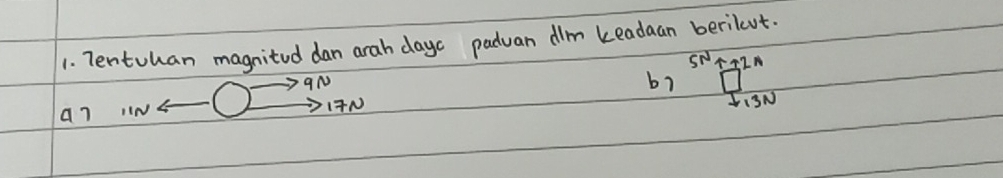 1. Tentukan magnitud dan arah daya paduan dlm keadaan berikut.
a) 11N 9N 17N
b) 5N 2N 13N